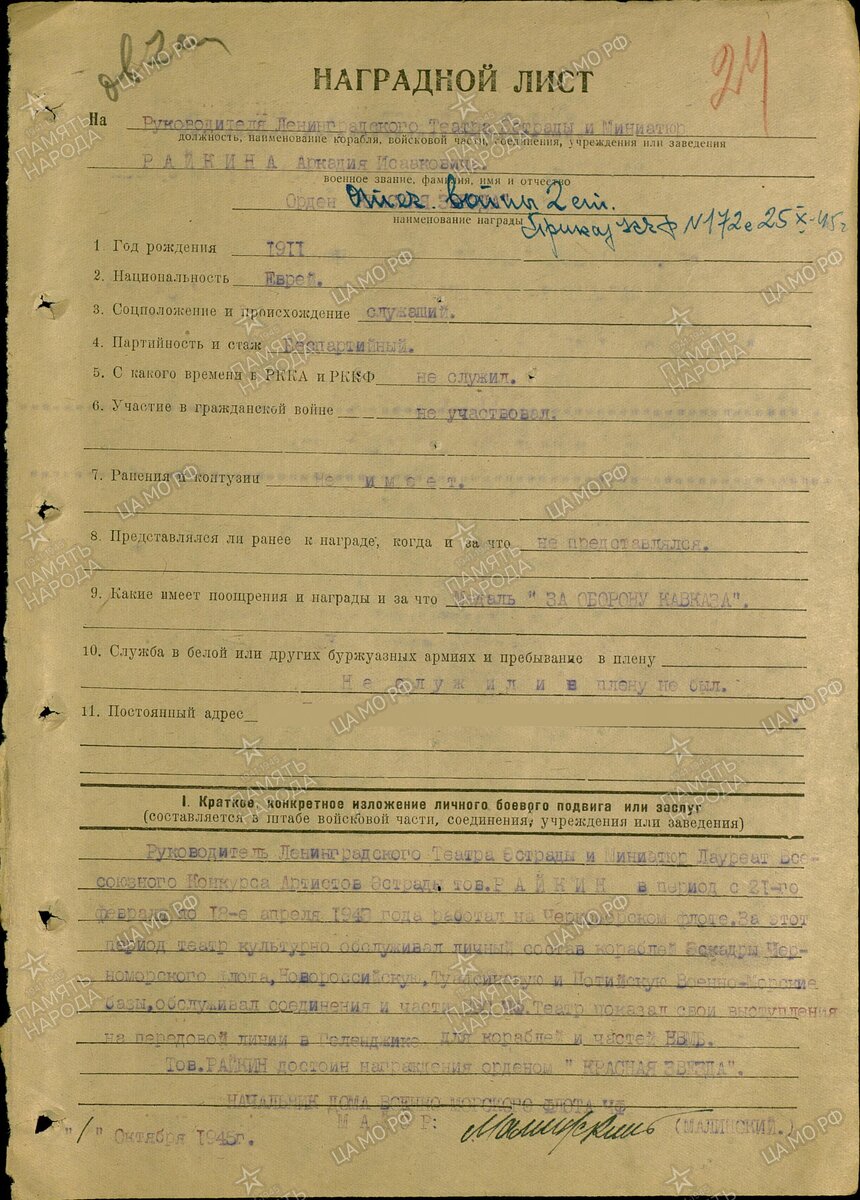 24
НАГРАДНОЙ ЛИСТ
На Руководителя Ленинградского Театра Эстрады и Миниатюр
должность, наименование корабля, войсковой части, соединения, учреждения или заведения
РАЙКИНА Аркадия Исааковича.
военное звание, фамилия, имя и отчество
Орден Отеч. войны 2 ст.
наименование награды Приказ КЧФ N 172 с 25 X-45г
1. Год рождения 1911
2. Национальность Еврей.
3. Соцположение и происхождение служащий.
4. Партийность и стаж Беспартийный.
5. С какого времени в РККА и РККФ не служил.
6. Участие в гражданской войне не участвовал.
7. Ранения и контузии Не имеет.
8. Представлялся ли ранее к награде, когда и за что не представлялся.
9. Какие имеет поощрения и награды и за что Медаль " ЗА ОБОРОНУ КАВКАЗА".
10. Служба в белой или других буржуазных армиях и пребывание в плену
Не служил и в плену не был.
11. Постоянный адрес
I. Краткое, конкретное изложение личного боевого подвига или заслуг
(составляется в штабе войсковой части, соединения, учреждения или заведения)
Руководитель Ленинградского Театра Эстрады и Миниатюр Лауреат Все-
союзного Конкурса Артистов Эстрады тов. РАЙКИН в период с 21-го
февраля по 18-е апреля 1943 года работал на Черноморском флоте. За этот
период театр культурно обслуживал личный состав кораблей Эскадры Чер-
номорского Флота, Новороссийскую, Туапсинскую и Потийскую Военно-Морские
базы, обслуживал соединения и части Театр показал свои выступления
на передовой линии в Геленджике для кораблей и частей НВМБ.
Тов. РАЙКИН достоин награждения орденом " КРАСНАЯ ЗВЕЗДА".
НАЧАЛЬНИК ДОМА ВОЕННО МОРСКОГО ФЛОТА ЧФ
МАЙОР: Малинский (МАЛИНСКИЙ.)
"1" Октября 1945г.
ПАМЯТЬ НАРОДА
ЦА МО РФ